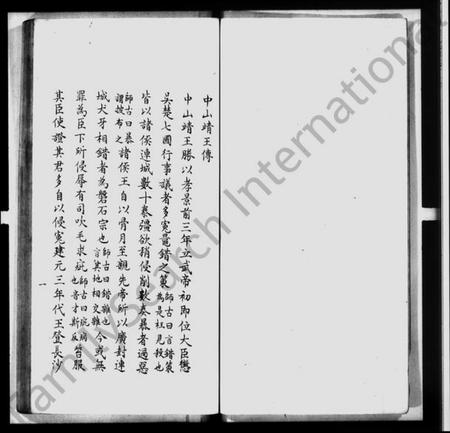 中山靖王傳
中山靖王勝以孝景前三年立武帝初即位大臣懲
吳楚七國行事議者多冤鼂錯之策師古曰言錯策為是枉見殺也
皆以諸侯連城數十泰彊欲稍侵削數奏暴其過惡
師古曰暴謂披布之諸侯王自以骨月至親先帝所以廣封連
城犬牙相錯者為磐石宗也師古曰錯雜也言其地相交雜今或無
罪為臣下所侵辱有司吹毛求疵師古曰疵病也音才斯反笞服
其臣使證其君多自以侵冤建元三年代王登長沙
一
FamilySearch International